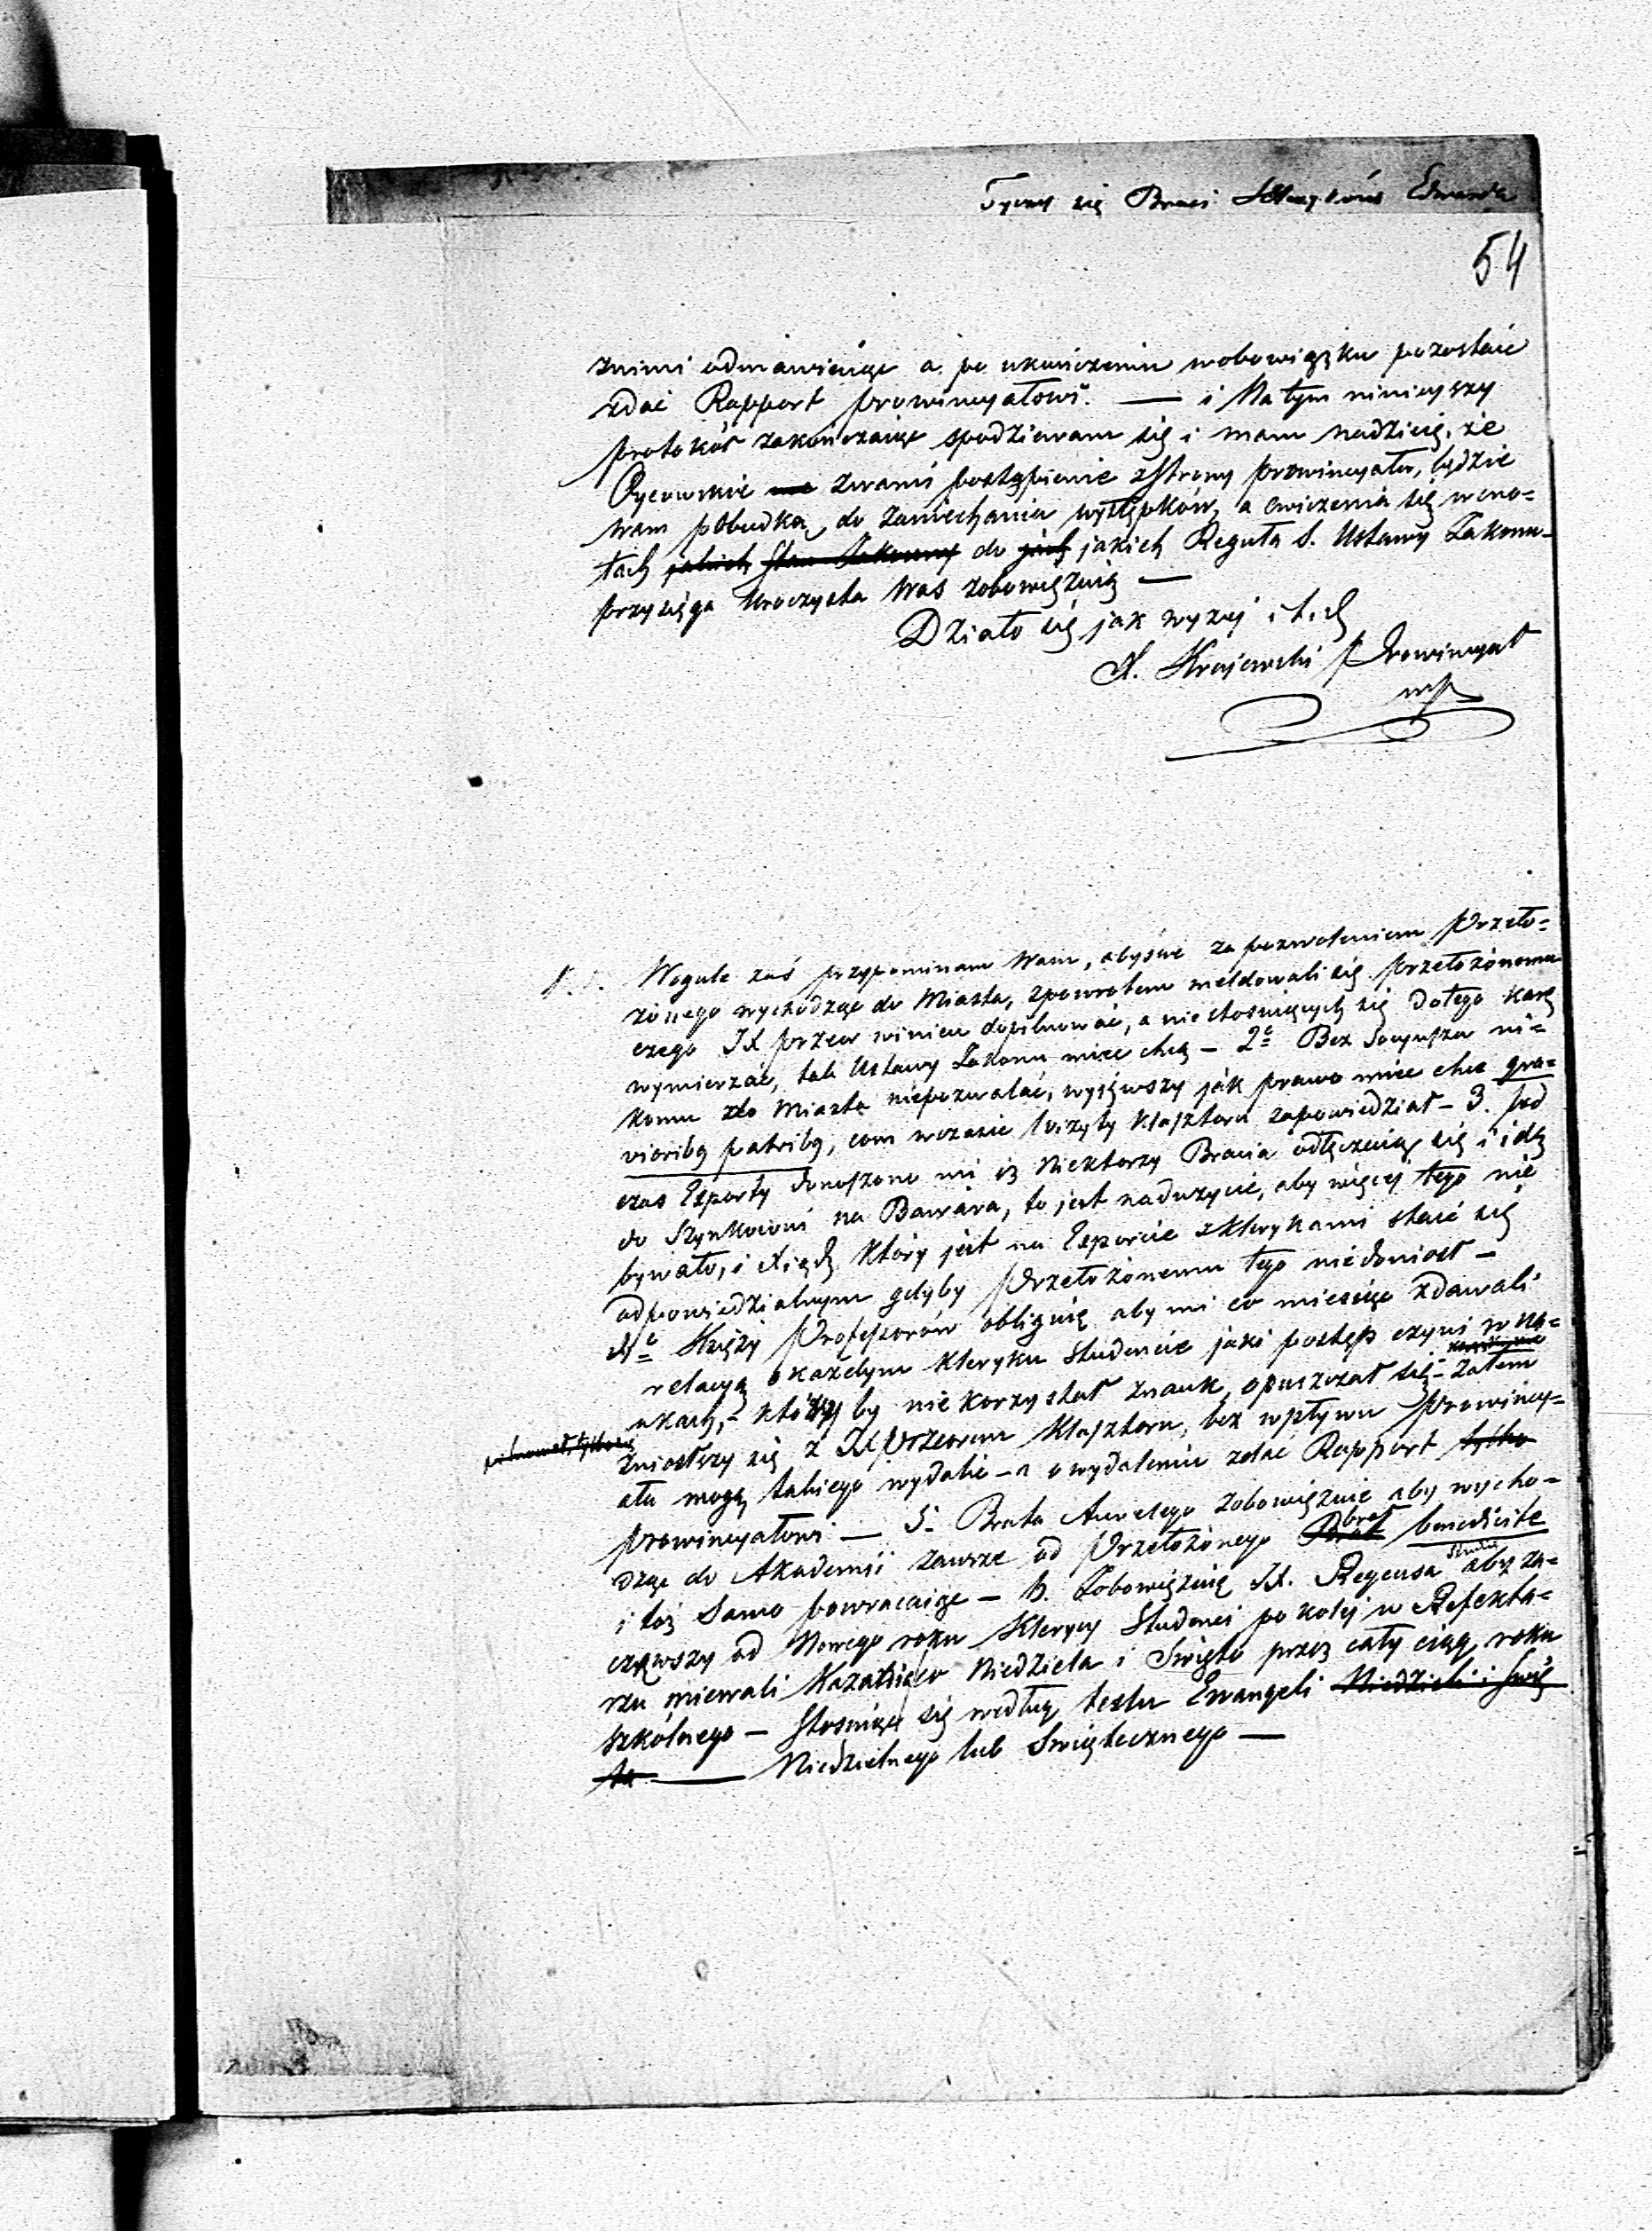 Tyczy się Braci Kleryków Edwarda
54
znimi odmawiaiąc a po ukończeniu wobowiązku pozostaie
zdać Rapport prowincyałowi. — i Na tym ninieyszy
protokół zakończaiąc spodziewam się i mam nadzieię, że
Oycowskie zwami postąpienie zstrony prowincyała, będzie
wam pobudką do zaniechania występków, a cwiczenia się wcno=
tach jakich Stan Zakonny do jakich Reguła S. Ustawy Zakonu
przysięga Uroczysta Was zobowięzuią —
Działo się jak wyzej i t. d
X. Krajewski Prowincyał
mp
Wogule zaś przypominam Wam, abyście za pozwoleniem Przeło=
żonego wychodząc do Miasta, zpowrotem meldowali się przełożonemu
czego JX przeor winien dopilnować, a niestosuiących się dotego karę
wymierzać, tak Ustawy Zakonu miec chcą — 2e Bez Socyusza ni=
komu do Miasta niepozwalać, wyjąwszy jak prawo miec chce gra=
vioribq patribq, com wczasie wizyty Klasztoru zapowiedział — 3. pod
czas Exporty donoszono mi iż Niektorzy Bracia odłączaią się i idą
do Szynkowni na Bawara, to jest nadużycie, aby więcej tego nie
bywało, i Xiądz który jest na Exporcie zklerykami stać się
odpowiedzialnym gdyby Przełożonemu tego niedoniosł —
4e Księży Professorów obliguię aby mi co miesiąc zdawali
relacyą o każdym kleryku Studencie jaki postęp czyni w na=
ukach, – który by nie korzystał znauk, opuszczał się – zatem
zniosłszy się z JX Przeorem Klasztoru, bez wpływu Prowincy=
ała mogą takiego wydalić — a o wydaleniu zdać Rapport tylko
prowincyałowi — 5. Brata Aurelego zobowięzuie aby wycho=
dząc do Akademii zawsze od Przełożonego Brał brał benedicite
i toż Samo powracaiąc — 6. Zobowięzuię JX. Regensa Studii aby za=
cząwszy od Nowego roku Klerycy Studenci po kolej w Refekta=
rzu miewali Kazania co Niedziela i Swięto przez cały ciąg roku
szkólnego — Stosuiąc się według textu Ewangeli Niedzieli i Swię
ta — Niedzielnego lub Swiątecznego —